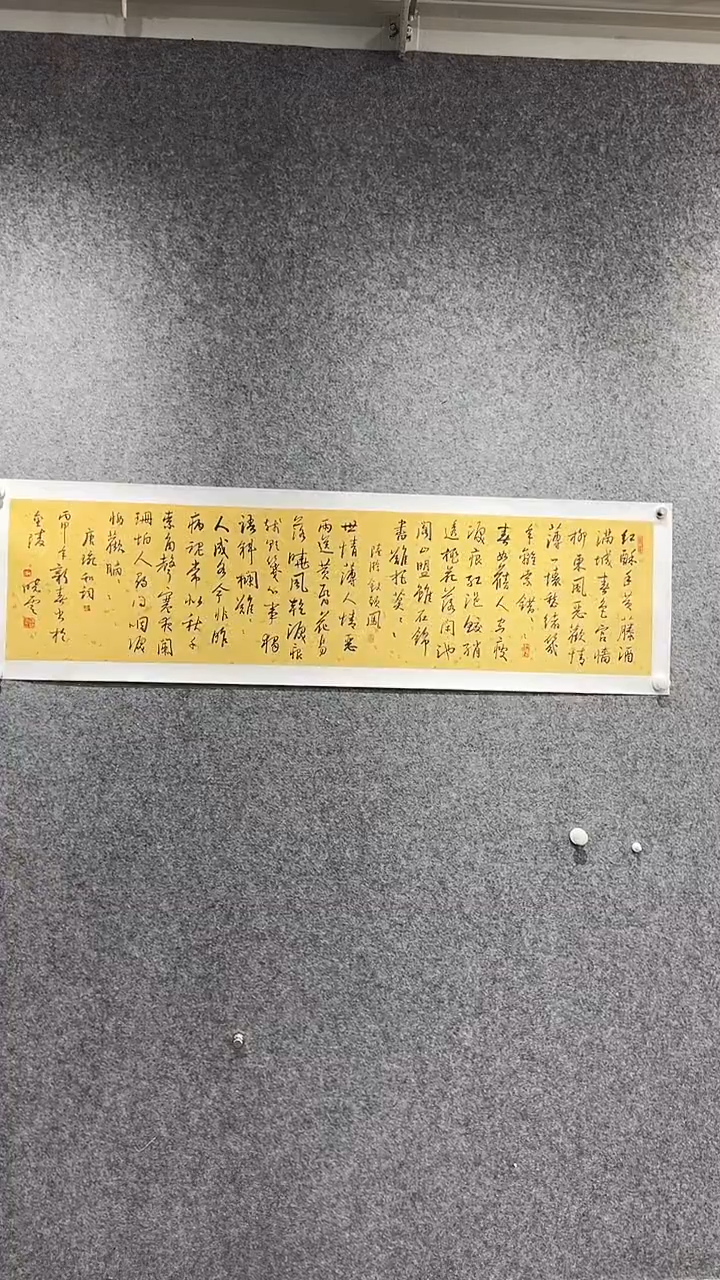 紅酥手黃藤酒
滿城春色宮墻
柳東風惡歡情
薄一懷愁緒幾
年離索錯
春如舊人空瘦
淚痕紅浥鮫綃
透桃花落閑池
閣山盟雖在錦
書難托莫：
陸游釵頭鳳
世情薄人情惡
雨送黃昏花易
落曉風乾淚痕
殘欲箋心事獨
語斜欄難：
人成各今非昨
病魂常似秋千
索角聲寒夜闌
珊怕人尋問咽淚
妝歡瞞：
唐琬和詞
年新春書於
金陵
曉雲